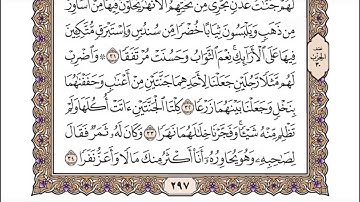 لَهُمْ جَنَّٰتُ عَدْنٍ تَجْرِى مِن تَحْتِهِمُ ٱلْأَنْهَٰرُ يُحَلَّوْنَ فِيهَا مِنْ أَسَاوِرَ
مِن ذَهَبٍ وَيَلْبَسُونَ ثِيَابًا خُضْرًا مِّن سُندُسٍ وَإِسْتَبْرَقٍ مُّتَّكِـِٔينَ
فِيهَا عَلَى ٱلْأَرَآئِكِ نِعْمَ ٱلثَّوَابُ وَحَسُنَتْ مُرْتَفَقًا ٣١ ۞ وَٱضْرِبْ
لَهُم مَّثَلًا رَّجُلَيْنِ جَعَلْنَا لِأَحَدِهِمَا جَنَّتَيْنِ مِنْ أَعْنَٰبٍ وَحَفَفْنَٰهُمَا
بِنَخْلٍ وَجَعَلْنَا بَيْنَهُمَا زَرْعًا ٣٢ كِلْتَا ٱلْجَنَّتَيْنِ ءَاتَتْ أُكُلَهَا وَلَمْ
تَظْلِم مِّنْهُ شَيْـًٔا وَفَجَّرْنَا خِلَٰلَهُمَا نَهَرًا ٣٣ وَكَانَ لَهُۥ ثَمَرٌ فَقَالَ
لِصَٰحِبِهِۦ وَهُوَ يُحَاوِرُهُۥٓ أَنَا۠ أَكْثَرُ مِنكَ مَالًا وَأَعَزُّ نَفَرًا ٣٤
نصف
الحزب
٣٠
٢٩٧